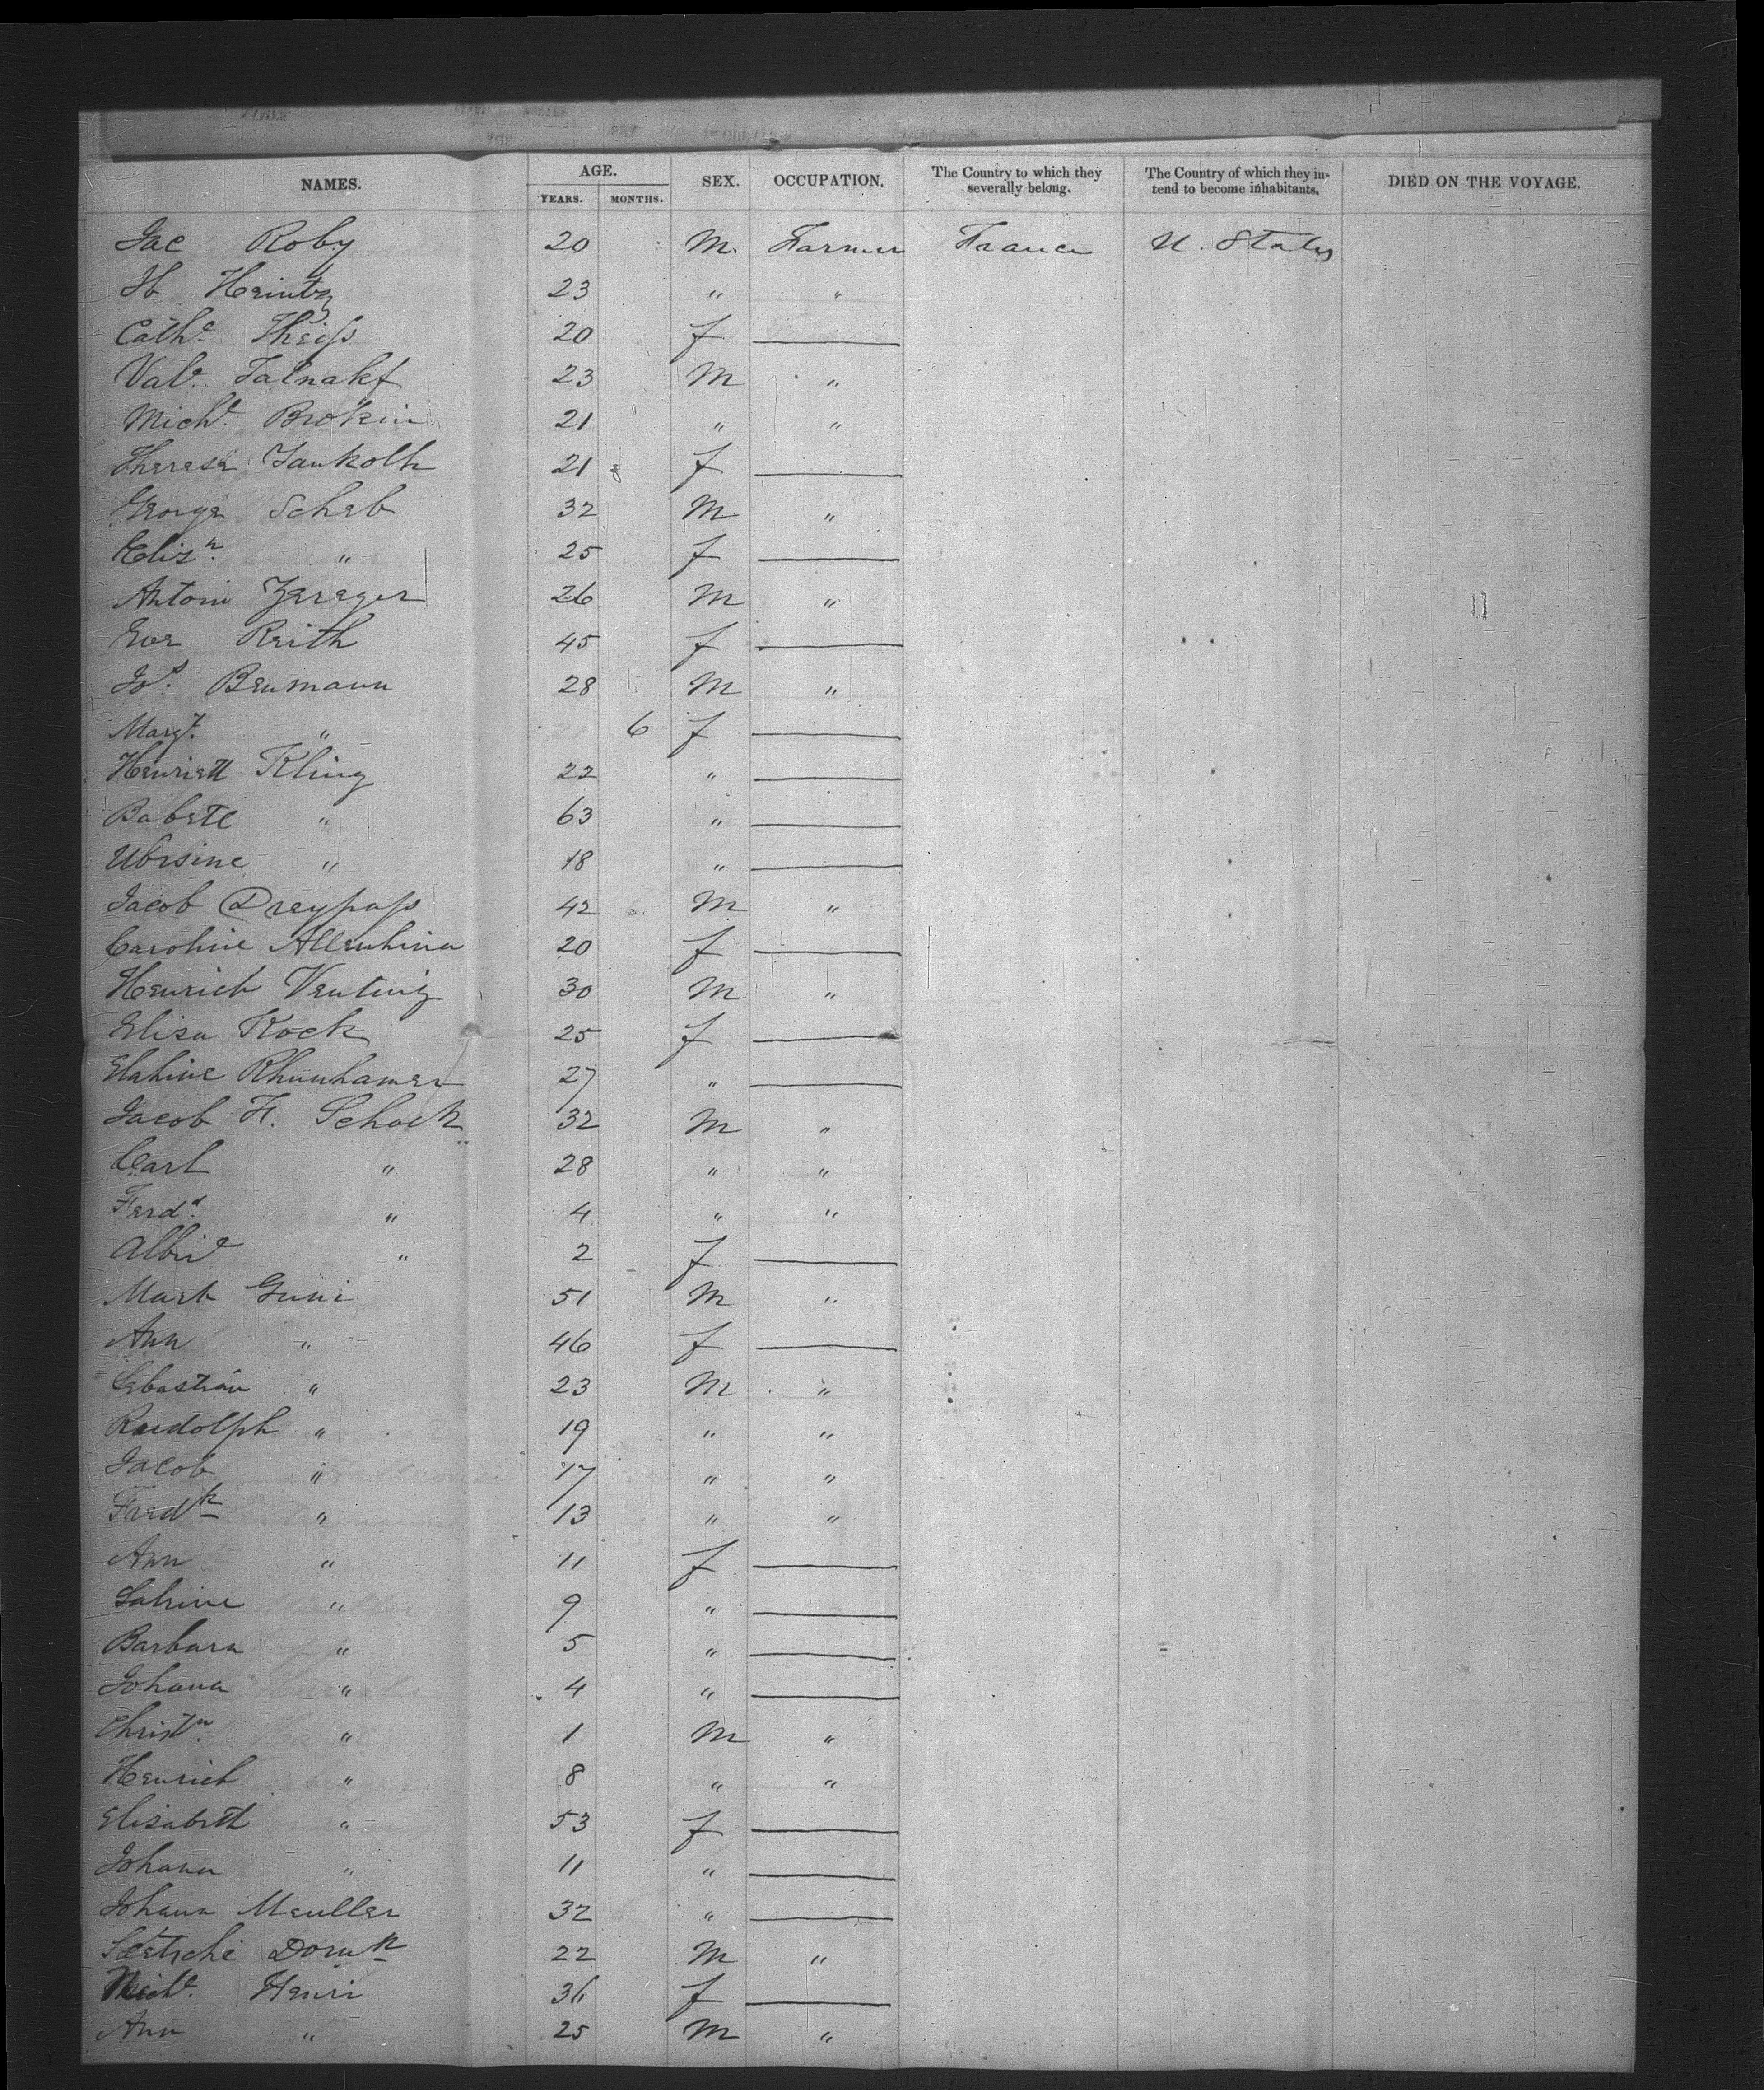 NAMES. AGE. SEX. OCCUPATION. The Country to which they severally belong. The Country of which they intend to become inhabitants. DIED ON THE VOYAGE.
YEARS. MONTHS.
Jac Roby 20 M. Farmer France U. States
H Heintz 23 " "
Cathe Theiss 20 f
Vale 23 M "
Michl Brokin 21 " "
Theresa 21 f
George Scheb 32 M "
Elisn " 25 f
Antoni 26 M "
Eve Reith 45 f
Jos. Beumann 28 M "
Margt. " 6 f
Henriett Kling 22 "
Babete " 63 "
Ubrsine " 18 "
Jacob Dreypass 42 M "
Caroline 20 f
Henrich Venting 30 M "
Elisa Kock 25 f
27 "
Jacob H. Schock 32 M "
Carl " 28 " "
Ferdd. " 4 " "
Albie " 2 f
Mart Guni 51 M "
Ann " 46 f
Sebastian " 23 M "
Ruedolph " 19 " "
Jacob " 17 " "
Fredk " 13 " "
Ann " 11 f
Sabine " 9 "
Barbara " 5 "
Johana " 4 "
Christn. " 1 M "
Henrich " 8 " "
Elisabett " 53 f
Johana " 11 "
Johana Meuller 32 "
22 M "
Henri 36 f
Ann " 25 M "